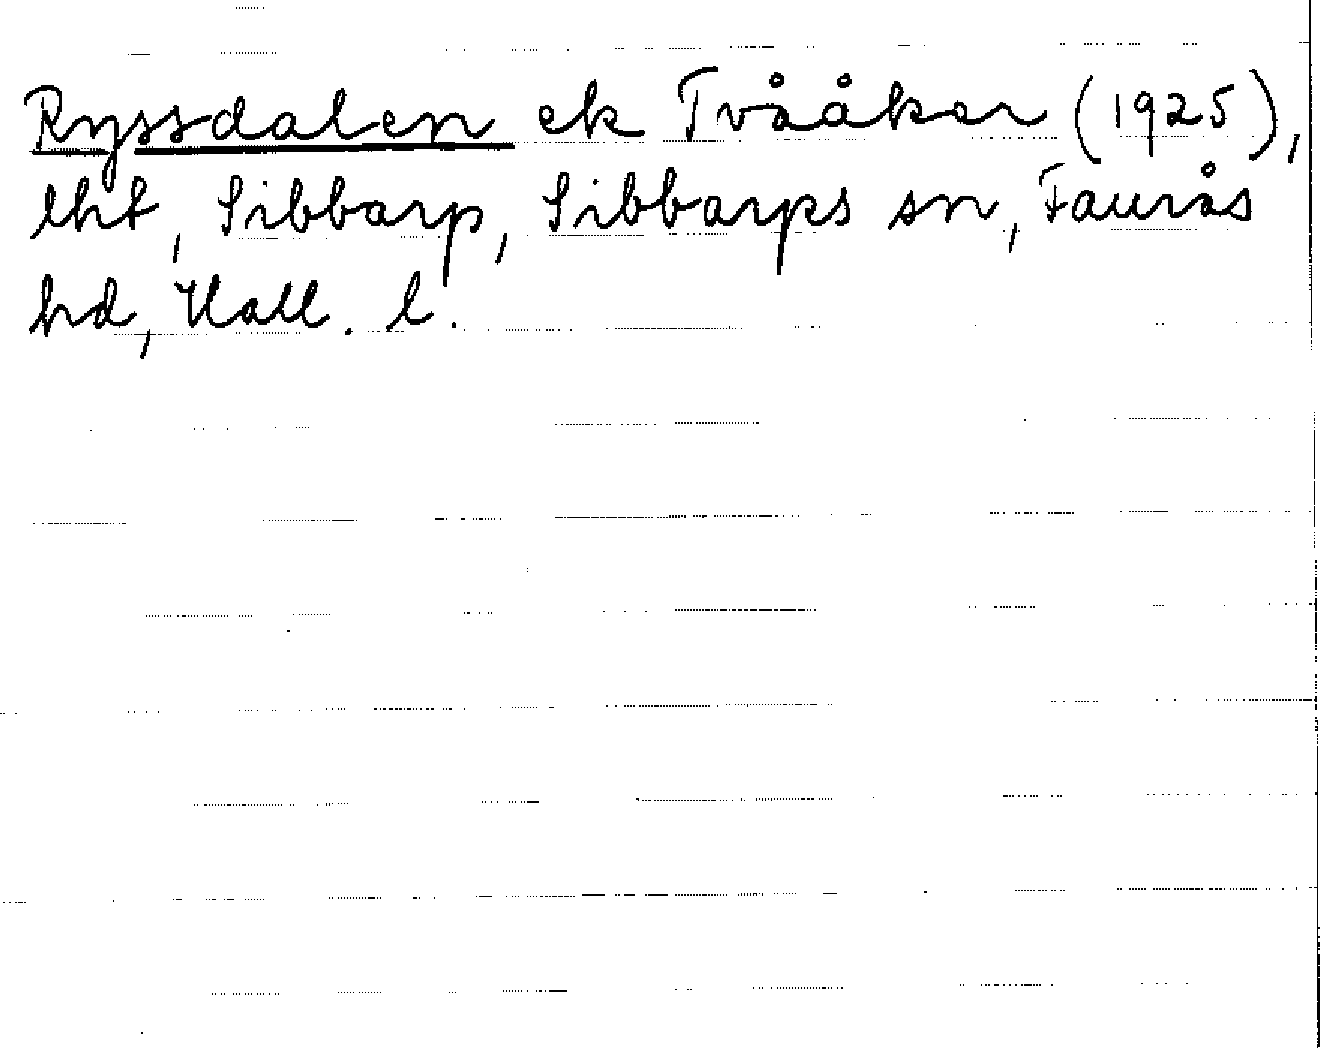 Ryssdalen ek Tvååker (1925),
lht, Sibbarp, Sibbarps sn, Faurås
hd, Hall. l.